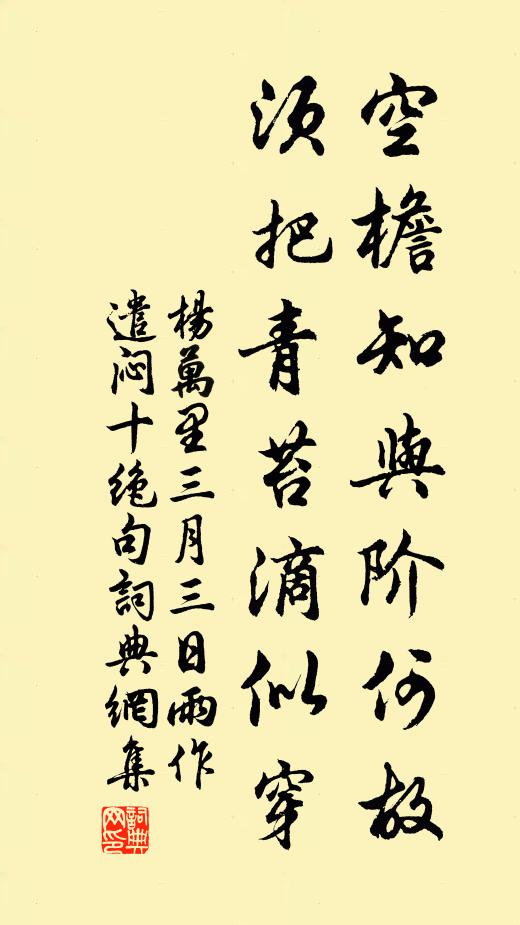 空檐知與阶何故
须把青苔滴似穿
楊萬里三月三日雨作
遣闷十绝句詞典網集
詞典网印